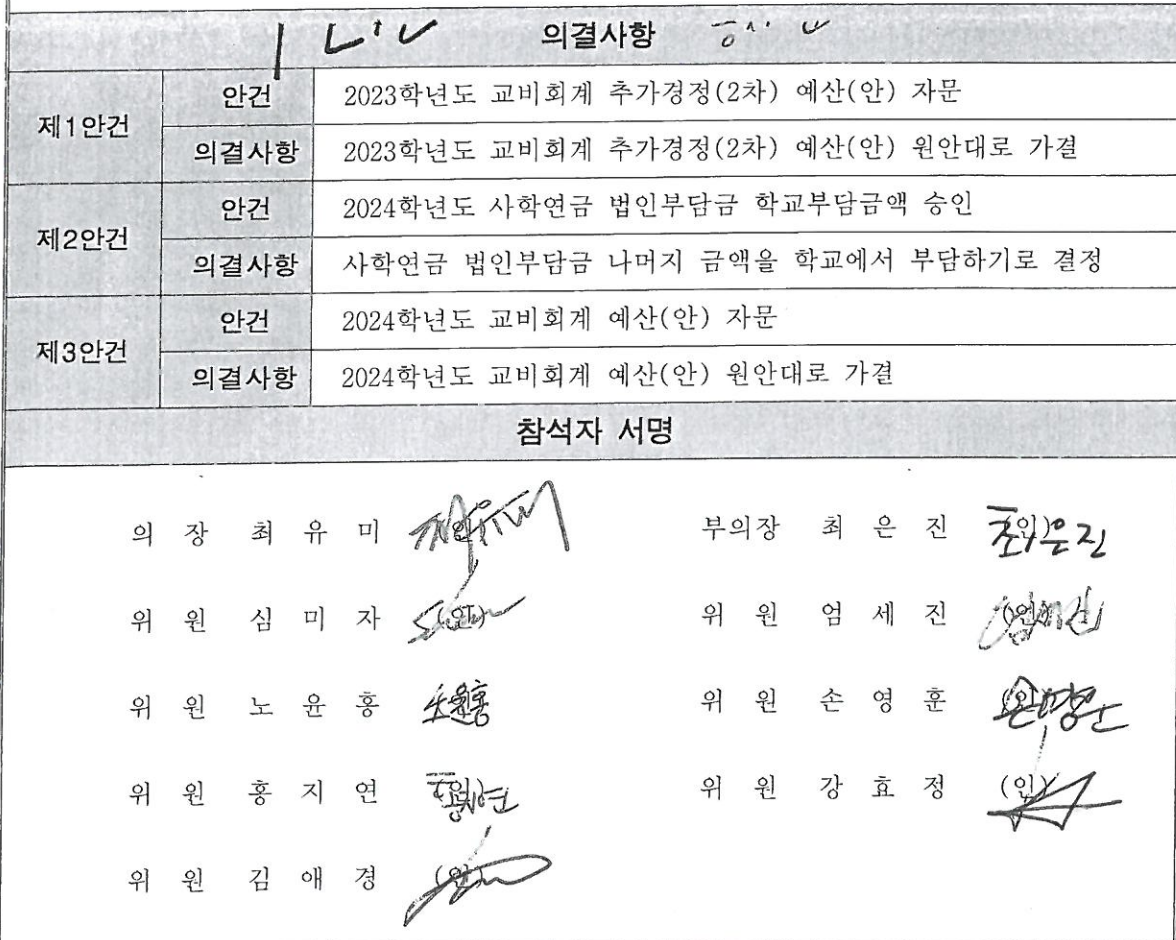 의결사항
제1안건 안건 2023학년도 교비회계 추가경정(2차) 예산(안) 자문
의결사항 2023학년도 교비회계 추가경정(2차) 예산(안) 원안대로 가결
제2안건 안건 2024학년도 사학연금 법인부담금 학교부담금액 승인
의결사항 사학연금 법인부담금 나머지 금액을 학교에서 부담하기로 결정
제3안건 안건 2024학년도 교비회계 예산(안) 자문
의결사항 2024학년도 교비회계 예산(안) 원안대로 가결
참석자 서명
의 장 최 유 미 (인) 부의장 최 은 진 (인)
위 원 심 미 자 (인) 위 원 엄 세 진 (인)
위 원 노 윤 홍 위 원 손 영 훈 (인)
위 원 홍 지 연 (인) 위 원 강 효 정 (인)
위 원 김 애 경 (인)